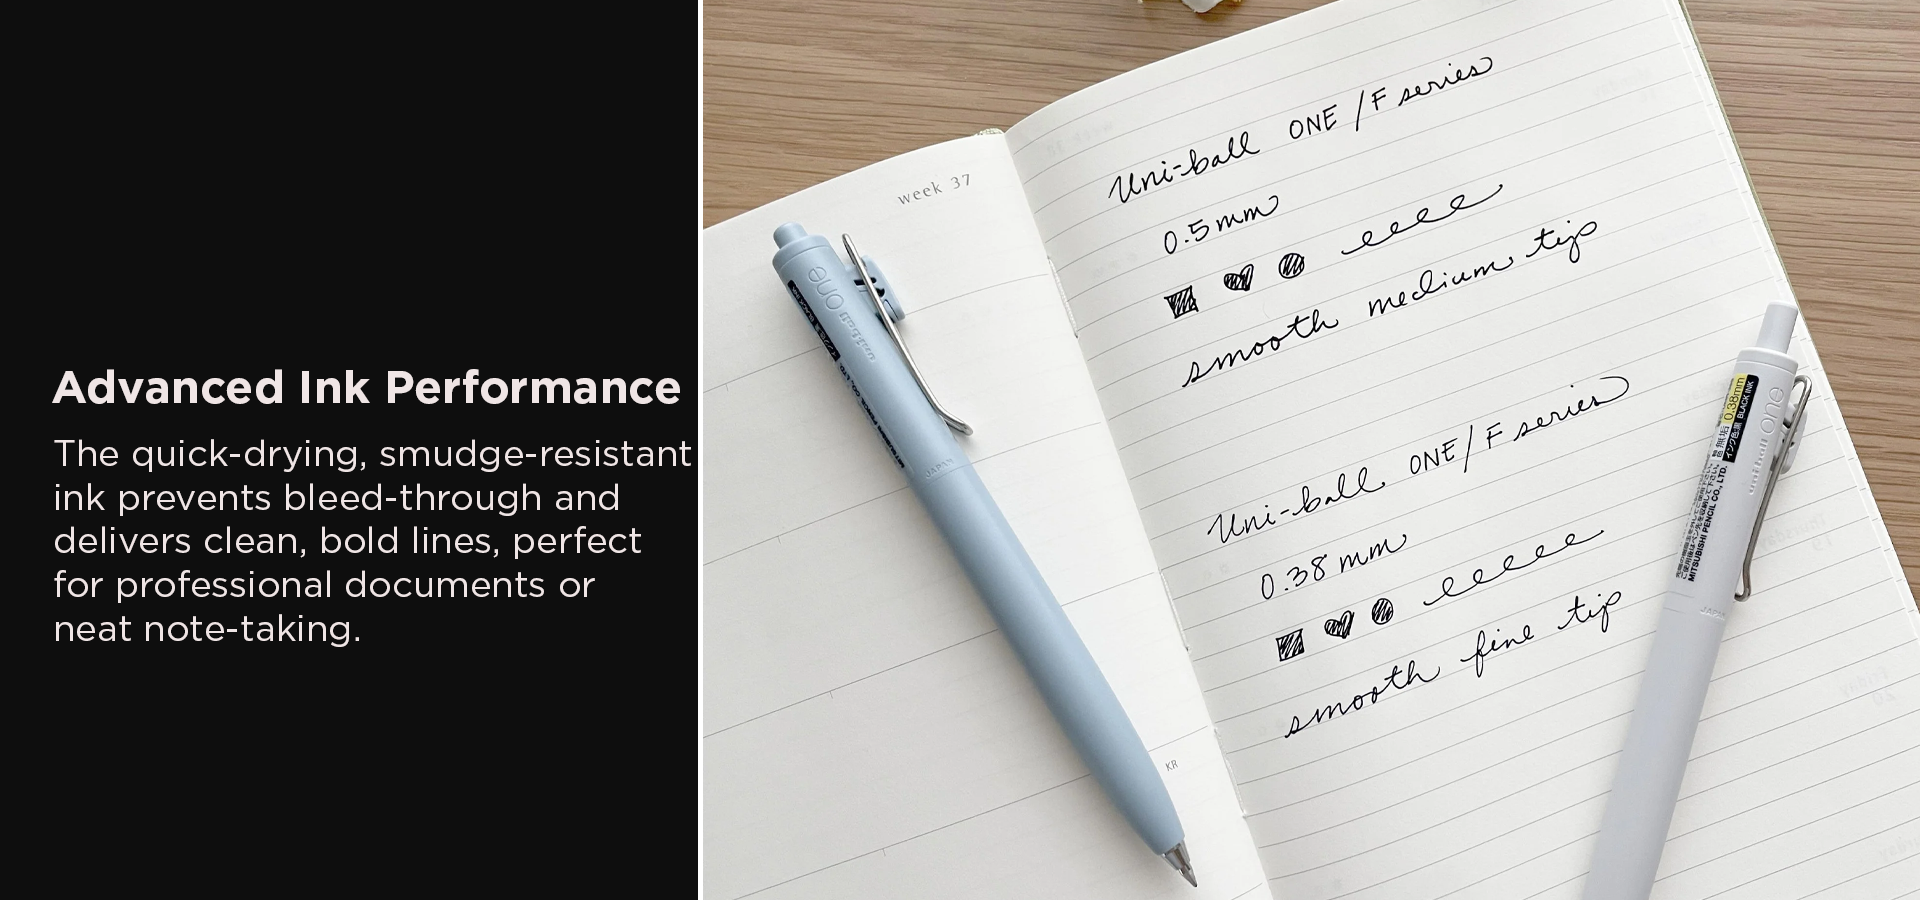 Advanced Ink Performance
The quick-drying, smudge-resistant
ink prevents bleed-through and
delivers clean, bold lines, perfect
for professional documents or
neat note-taking.
week 37
Uni-ball ONE / F series
0.5 mm
smooth medium tip
Uni-ball ONE / F series
0.38 mm
smooth fine tip
KR
one
uni-ball
JAPAN
0.38mm
BLACK INK
インク色黒
uniball one
MITSUBISHI PENCIL CO., LTD.
JAPAN